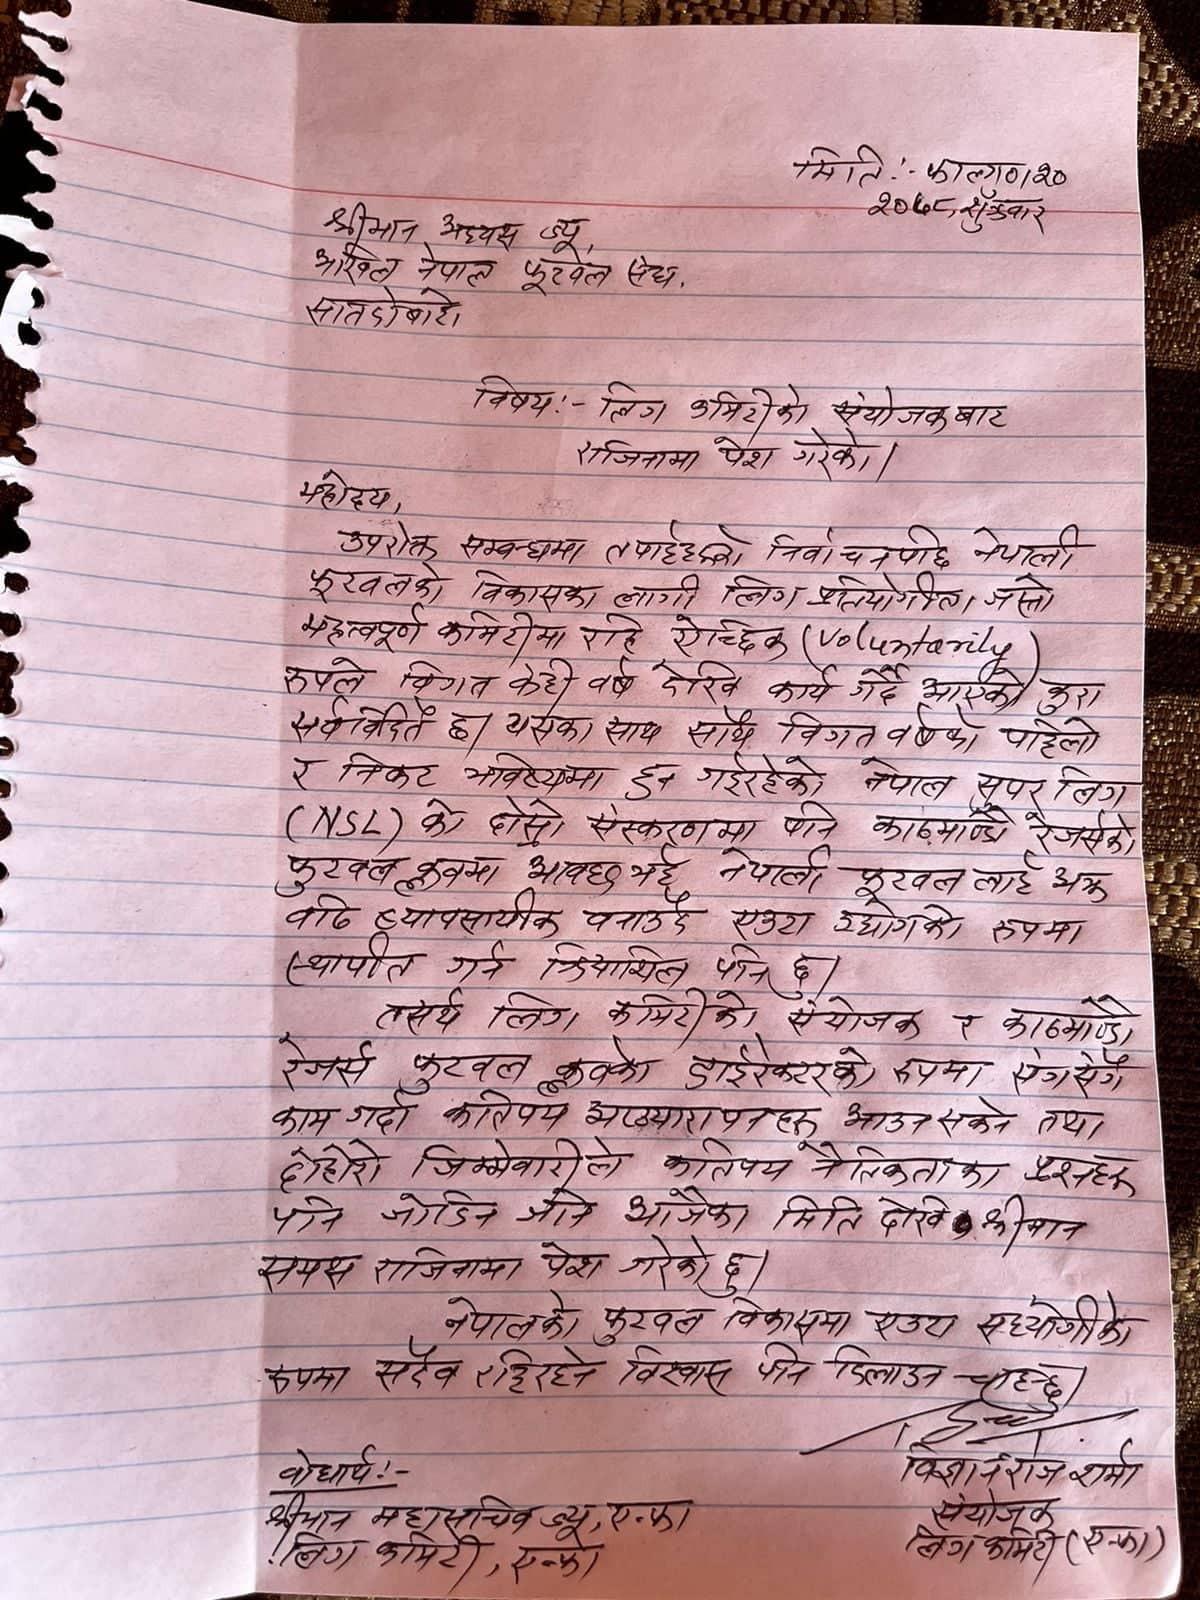 मिति:- फाल्गुण।२०
२०७८, शुक्रवार
श्रीमान अध्यक्ष ज्यू,
अखिल नेपाल फूटवल संघ,
सातदोबाटो।
विषय:- लिग कमिटीको संयोजकबाट
राजिनामा पेश गरेको।
महोदय,
उपरोक्त सम्बन्धमा तपाईहरुको निर्वाचनपछि नेपाली
फूटवलको विकासका लागी लिग प्रतियोगीता जस्तो
महत्वपूर्ण कमिटीमा रहि ऐच्छिक (voluntarily)
रुपले विगत केही वर्ष देखि कार्य गर्दै आएको कुरा
सर्वविदितै छ। यसका साथ साथै विगत वर्षको पहिलो
र निकट भविष्यमा हुन गईरहेको नेपाल सुपर लिग
(NSL) को दोस्रो संस्करणमा पनि काठमाण्डौ रेजर्सको
फुटवल क्लवमा आवद्ध भई नेपाली फूटवल लाई अझ
वढि व्यावसायीक वनाउदै एउटा उद्योगको रुपमा
स्थापीत गर्न क्रियाशिल पनि छु।
तसर्थ लिग कमिटीको संयोजक र काठमाण्डौ
रेजर्स फुटवल क्लवको डाईरेक्टरको रुपमा संगसंगै
काम गर्दा कतिपय अप्ठ्यारापनहरु आउन सक्ने तथा
दोहोरो जिम्मेवारीले कतिपय नैतिकताका प्रश्नहरु
पनि जोडिने भनि आजैका मिति देखि श्रीमान
समक्ष राजिनामा पेश गरेको छु।
नेपालको फुटवल विकासमा एउटा सहयोगीको
रुपमा सदैव रहिरहने विश्वास पनि दिलाउन चाहन्छु।
विज्ञानराज शर्मा
संयोजक
लिग कमिटी (एन्फा)
वोधार्थ:-
श्रीमान महासचिव ज्यू, एन्फा
लिग कमिटी, एन्फा